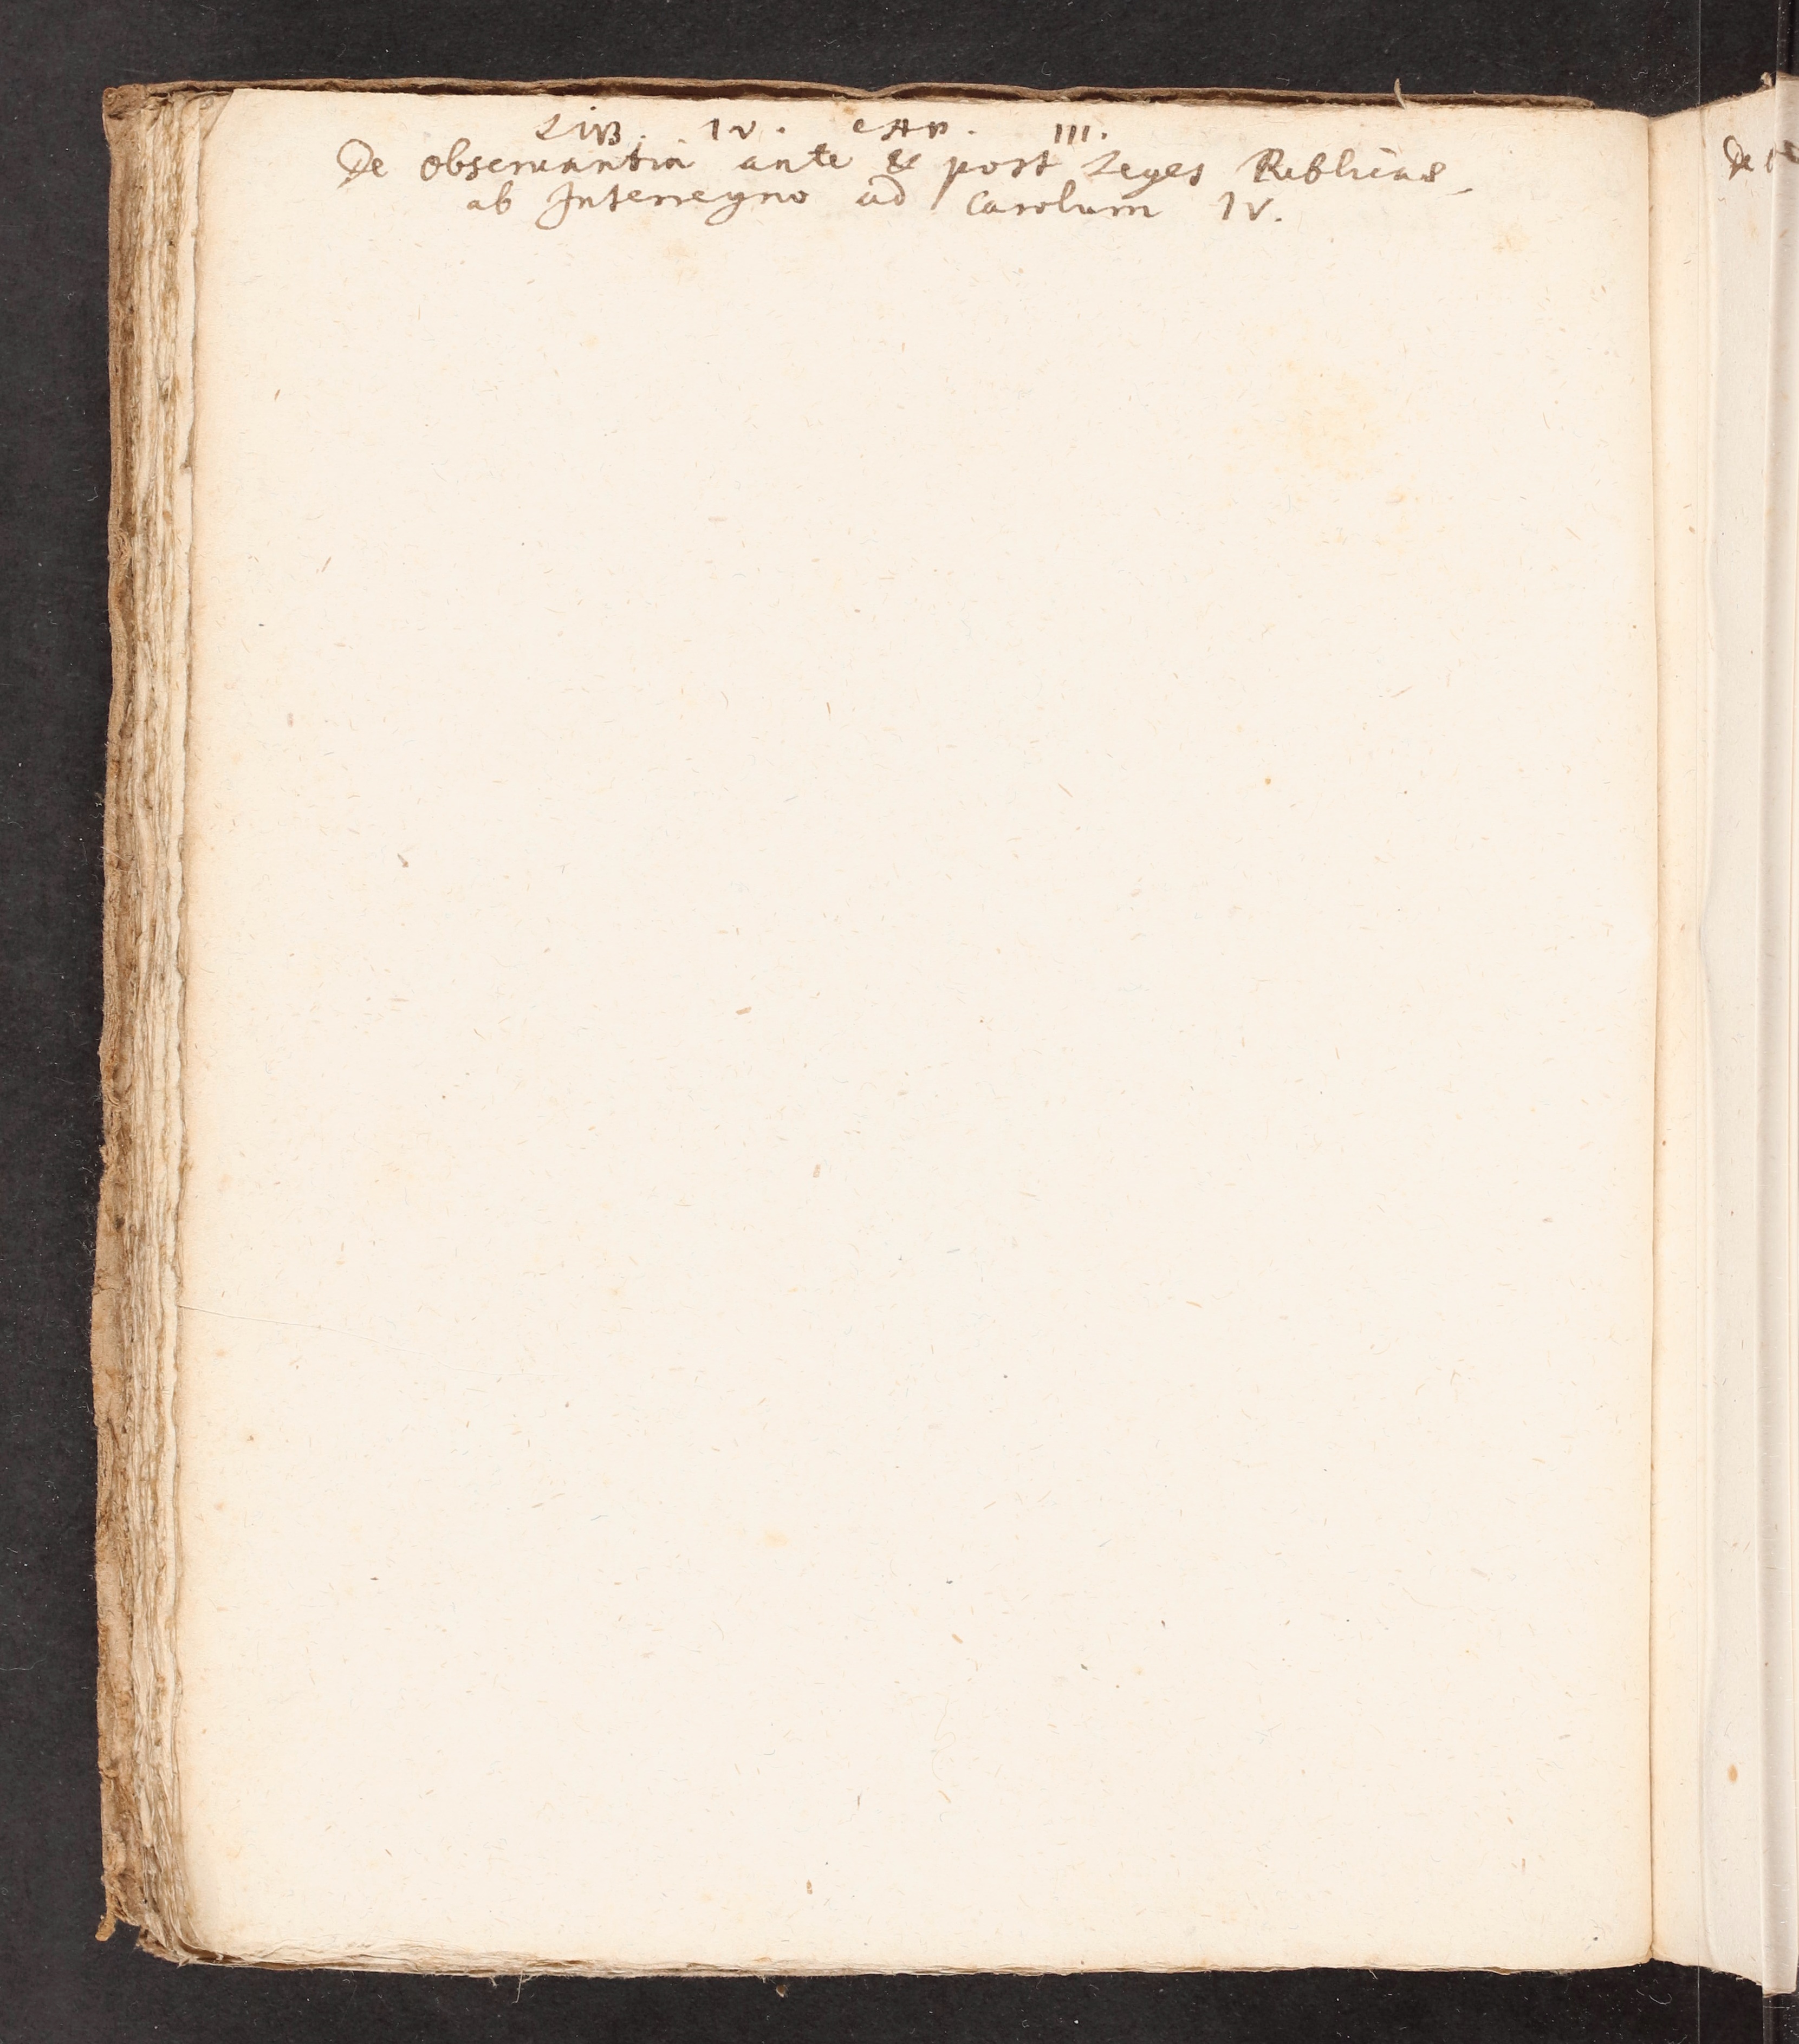 LIB. IV. CAP. III.
De Obseruantia ante & post Leges Publicas
ab Interregno ad Carolum IV.
De